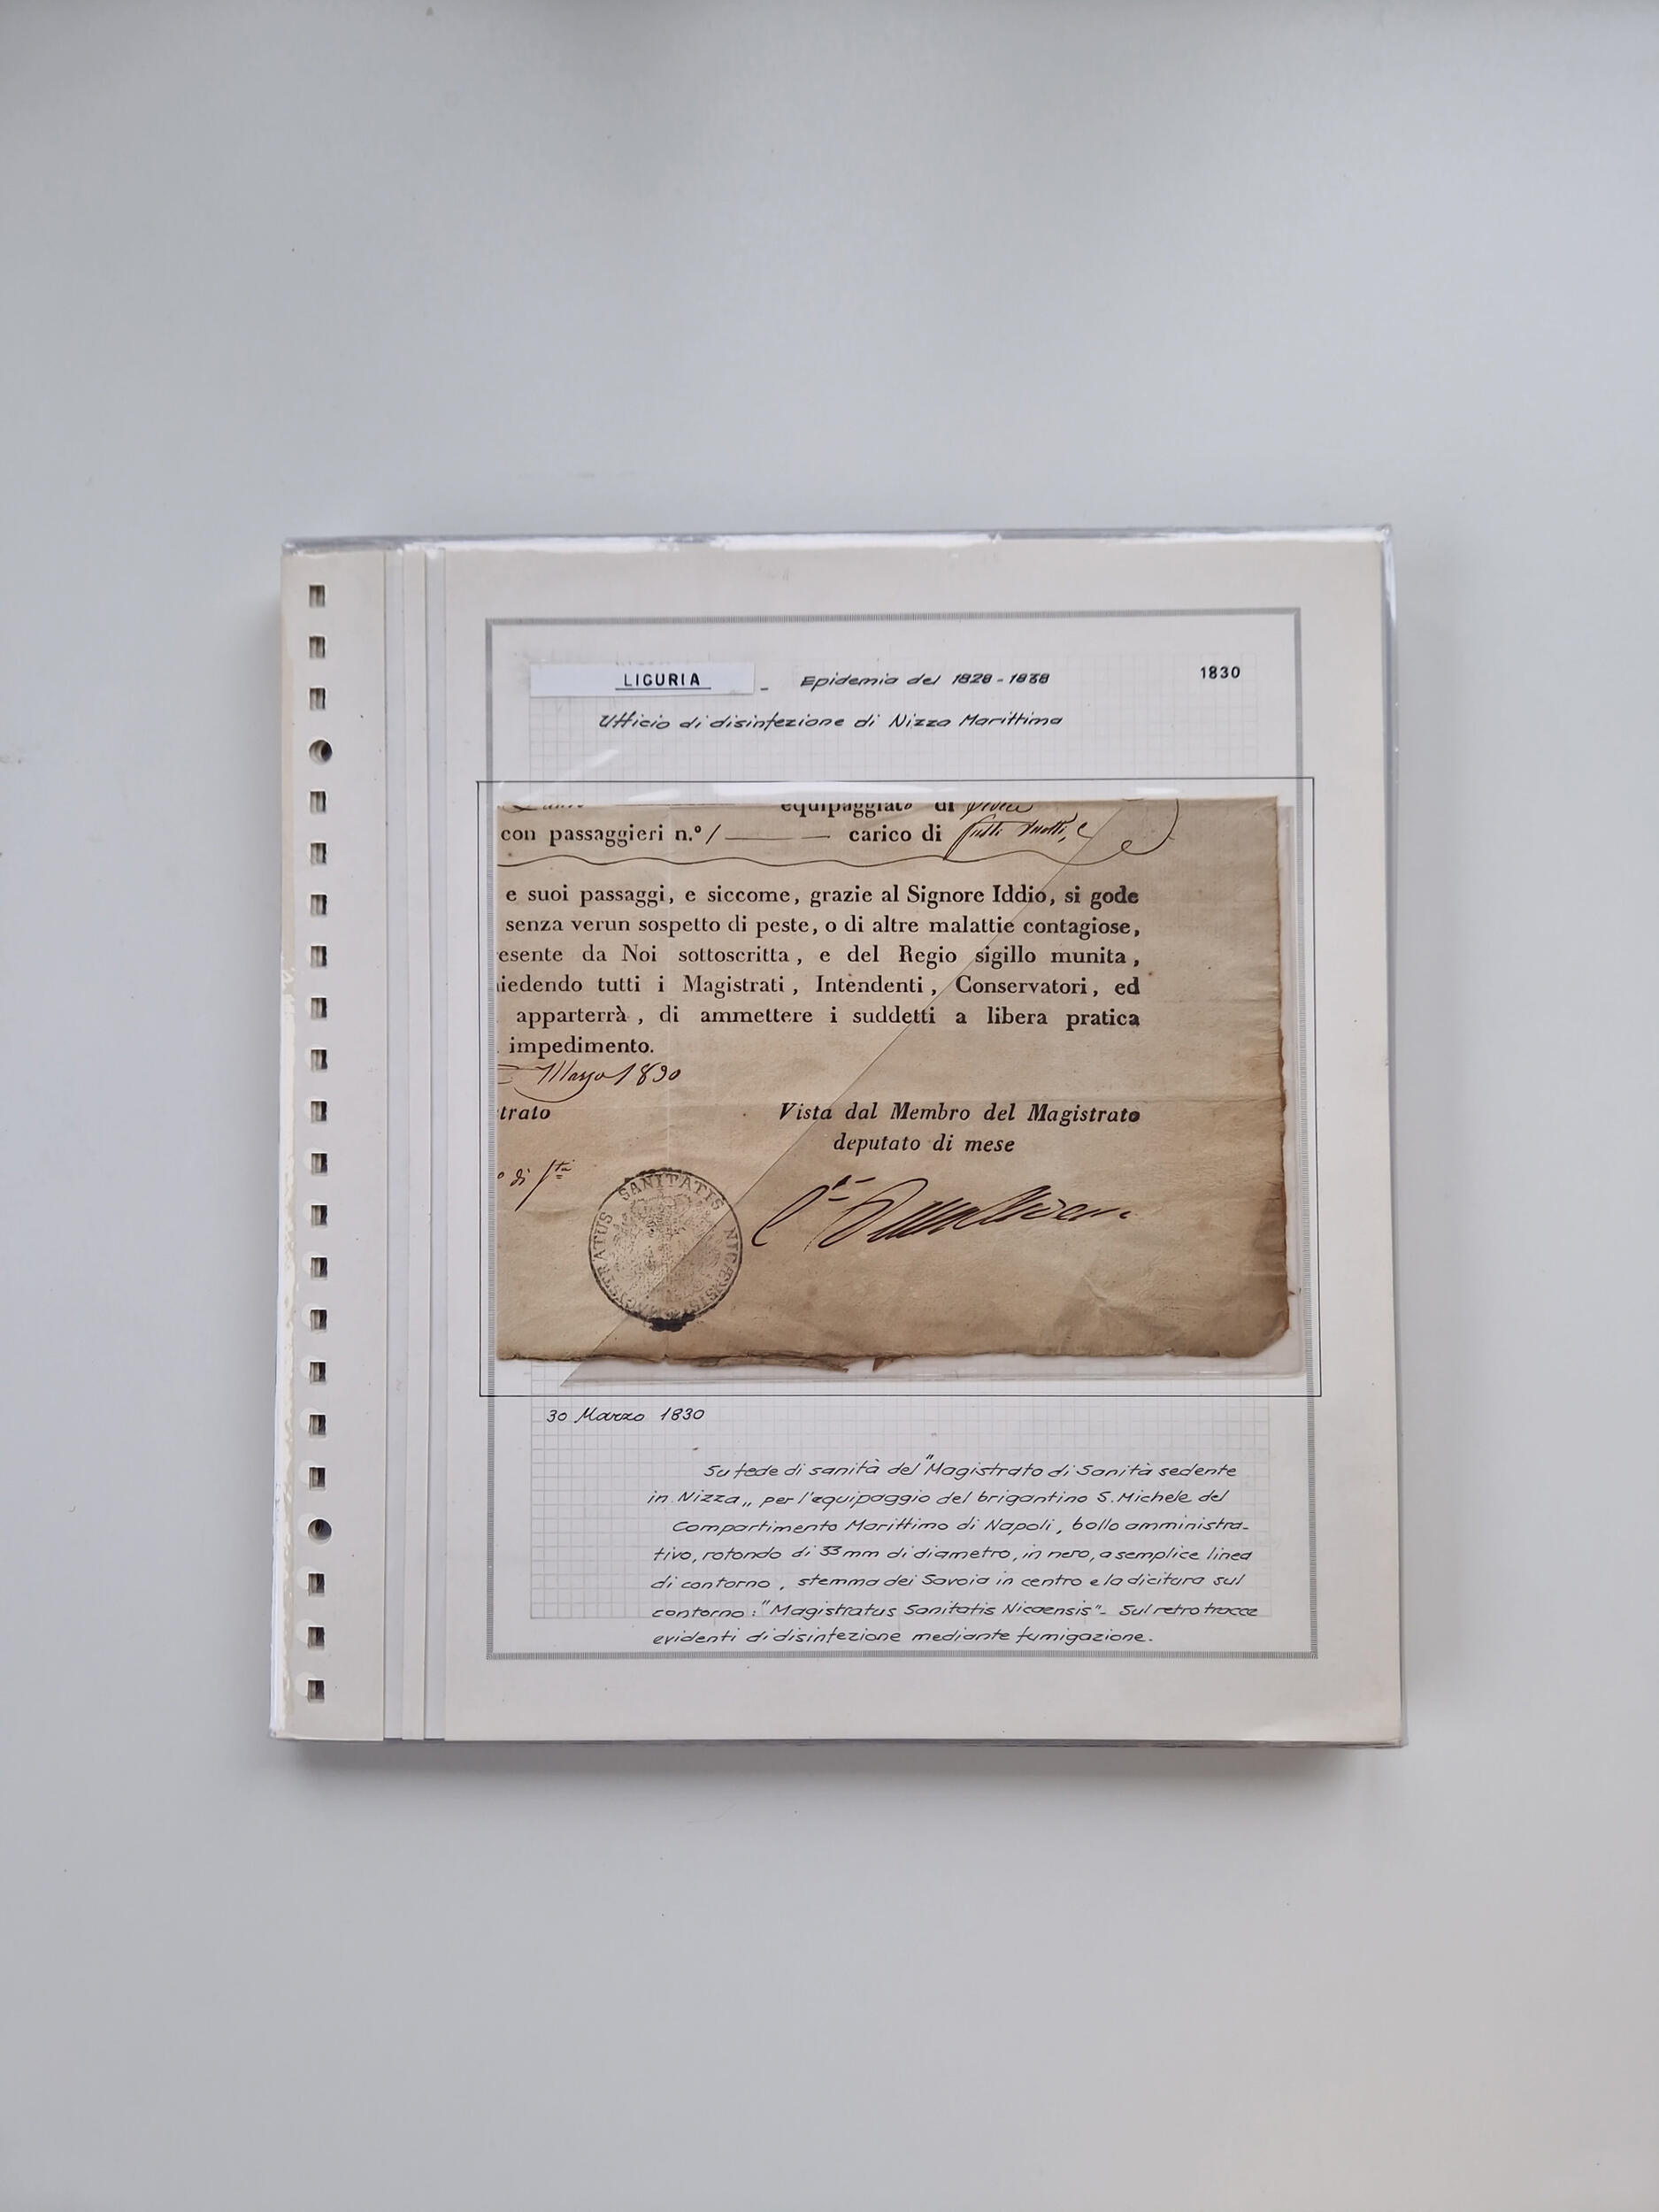 LIGURIA - Epidemia del 1828-1838 1830
Ufficio di disinfezione di Nizza Marittima
equipaggiato di
con passaggieri n.º 1 carico di
e suoi passaggi, e siccome, grazie al Signore Iddio, si gode
senza verun sospetto di peste, o di altre malattie contagiose,
esente da Noi sottoscritta, e del Regio sigillo munita,
iedendo tutti i Magistrati, Intendenti, Conservatori, ed
apparterrà, di ammettere i suddetti a libera pratica
impedimento.
Marzo 1830
trato Vista dal Membro del Magistrato
deputato di mese
o di
MAGISTRATUS SANITATIS NICÆNSIS
30 Marzo 1830
Su fede di sanità del "Magistrato di Sanità sedente
in Nizza„ per l'equipaggio del brigantino S. Michele del
Compartimento Marittimo di Napoli, bollo amministra-
tivo, rotondo di 33 mm di diametro, in nero, a semplice linea
di contorno, stemma dei Savoia in centro e la dicitura sul
contorno: "Magistratus Sanitatis Nicaensis". Sul retro tracce
evidenti di disinfezione mediante fumigazione.